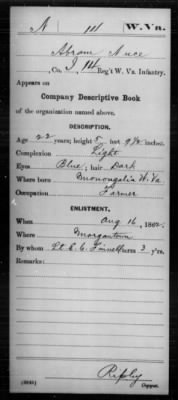 N 14 W. Va.
Abram Nuce
, Co. I, 14 Reg't W. Va. Infantry.
Appears on
Company Descriptive Book
of the organization named above.
DESCRIPTION.
Age 22 years; height 5 feet 9 1/2 inches.
Complexion Light
Eyes Blue; hair Dark
Where born Monongalia W. Va
Occupation Farmer
ENLISTMENT.
When Aug 16, 1862.
Where Morgantown
By whom Lt. C. C. ; term 3 y'rs.
Remarks:
Ripley
Copyist.